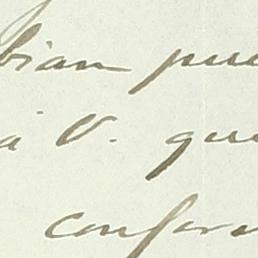 bian pue
a V. que
confor